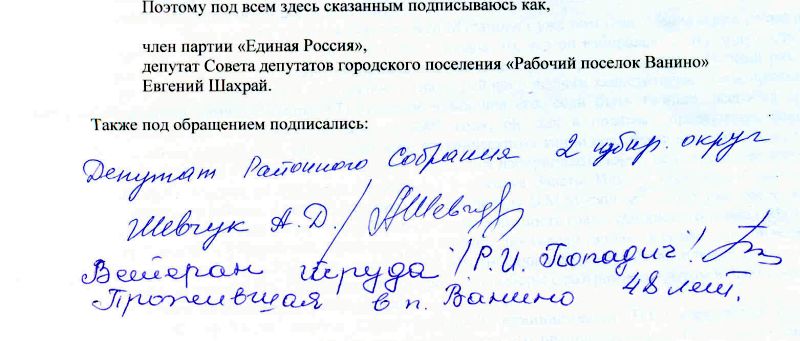 Поэтому под всем здесь сказанным подписываюсь как,
член партии «Единая Россия»,
депутат Совета депутатов городского поселения «Рабочий поселок Ванино»
Евгений Шахрай.
Также под обращением подписались:
Депутат Районного Собрания 2 избир. округ
Шевчук А.Д. / АШевчук
Ветеран труда /Р.И. Попадич/
Прожившая в п. Ванино 48 лет.